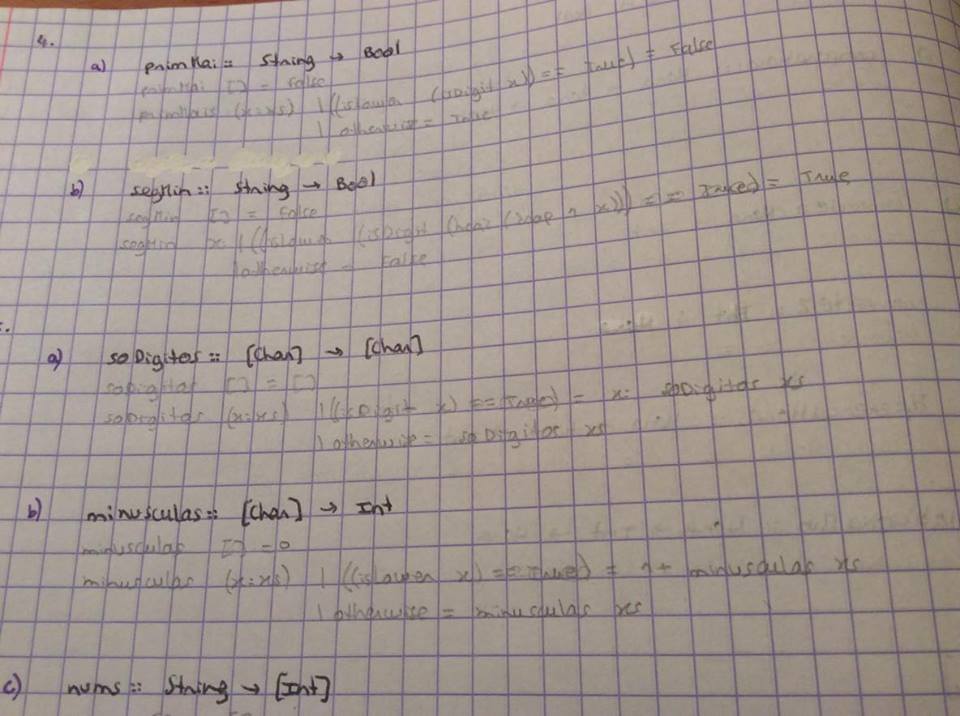 4.
a) primMai :: String → Bool
primMai [] = False
primMais (x:xs) | ((islower (isDigit x)) == True) = False
| otherwise = True
b) segMin :: String → Bool
segMin [] = False
segMin x | ((islower (isDigit (head (drop 1 x))) == True) = True
| otherwise = False
a) soDigitos :: [Char] → [Char]
soDigitos [] = []
soDigitos (x:xs) | ((isDigit x) == True) = x: soDigitos xs
| otherwise = soDigitos xs
b) minusculas :: [Char] → Int
minusculas [] = 0
minusculas (x:xs) | ((islower x) == True) = 1+ minusculas xs
| otherwise = minusculas xs
c) nums :: String → [Int]